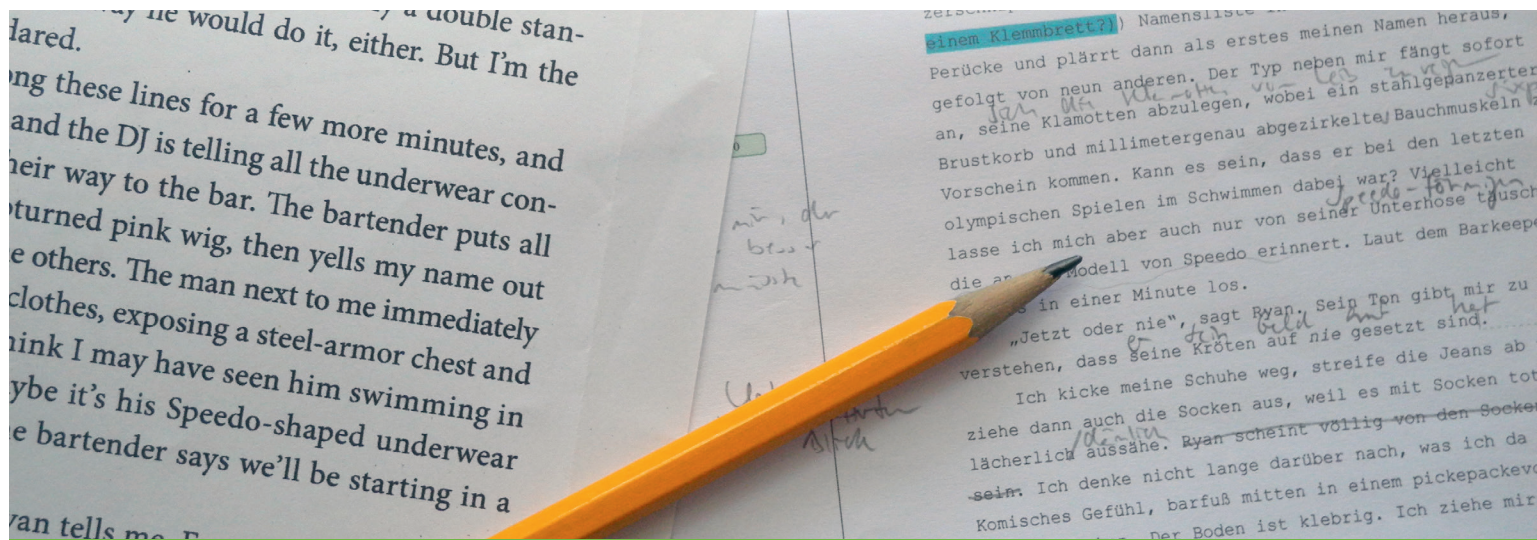 he would do it, either. But I'm the
a double stan-
lared.
ong these lines for a few more minutes, and
and the DJ is telling all the underwear con-
heir way to the bar. The bartender puts all
oturned pink wig, then yells my name out
e others. The man next to me immediately
clothes, exposing a steel-armor chest and
hink I may have seen him swimming in
ybe it's his Speedo-shaped underwear
e bartender says we'll be starting in a
yan tells me.
einem Klemmbrett?)) Namensliste
Perücke und plärrt dann als erstes meinen Namen heraus,
gefolgt von neun anderen. Der Typ neben mir fängt sofort
an, seine Klamotten abzulegen, wobei ein stahlgepanzerter
Brustkorb und millimetergenau abgezirkelte Bauchmuskeln
Vorschein kommen. Kann es sein, dass er bei den letzten
olympischen Spielen im Schwimmen dabei war? Vielleicht
speedo-förmigen
lasse ich mich aber auch nur von seiner Unterhose täusch
die an Modell von Speedo erinnert. Laut dem Barkeepe
s in einer Minute los.
„Jetzt oder nie", sagt Ryan. Sein Ton gibt mir zu
er sein Geld hat
verstehen, dass seine Kröten auf nie gesetzt sind.
Ich kicke meine Schuhe weg, streife die Jeans ab
ziehe dann auch die Socken aus, weil es mit Socken tot
dämlich
lächerlich aussähe. Ryan scheint völlig von den Socken
sein. Ich denke nicht lange darüber nach, was ich da
Komisches Gefühl, barfuß mitten in einem pickepackevo
Der Boden ist klebrig. Ich ziehe mir
mir, der
besser